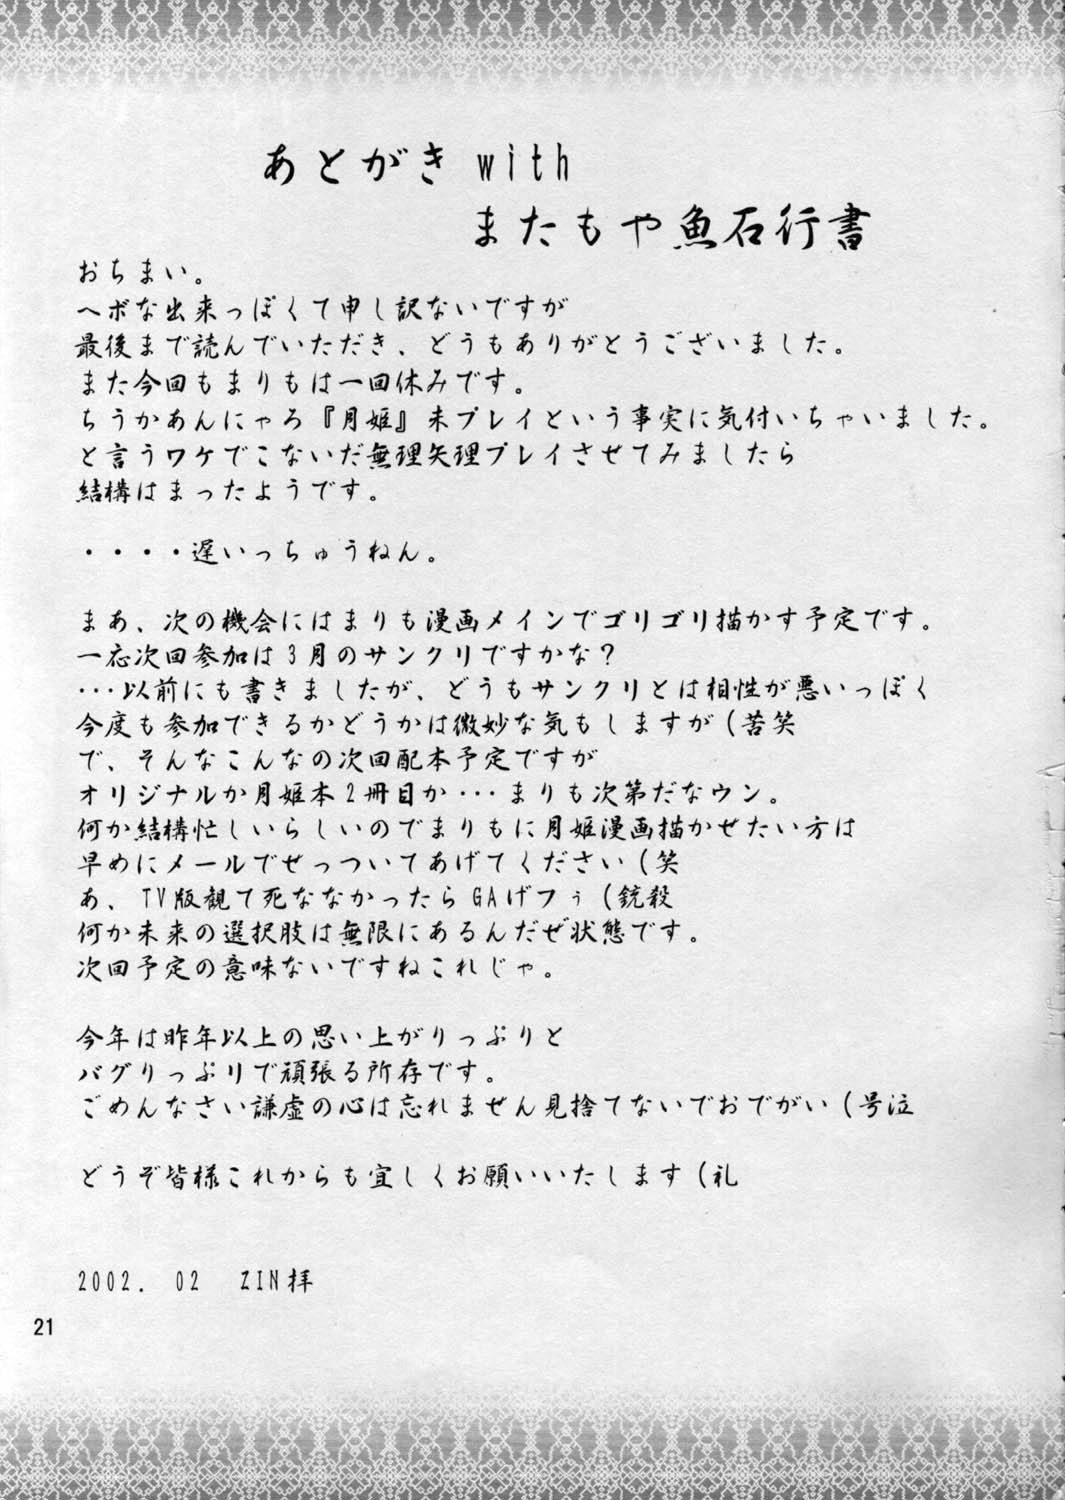 あとがき with
またもや魚石行書
おちまい。
ヘボな出来っぽくて申し訳ないですが
最後まで読んでいただき、どうもありがとうございました。
また今回もまりもは一回休みです。
ちうかあんにゃろ『月姫』未プレイという事実に気付いちゃいました。
と言うワケでこないだ無理矢理プレイさせてみましたら
結構はまったようです。
・・・・遅いっちゅうねん。
まあ、次の機会にはまりも漫画メインでゴリゴリ描かす予定です。
一応次回参加は3月のサンクリですかな?
・・・以前にも書きましたが、どうもサンクリとは相性が悪いっぽく
今度も参加できるかどうかは微妙な気もしますが(苦笑
で、そんなこんなの次回配本予定ですが
オリジナルか月姫本2冊目か・・・まりも次第だなウン。
何か結構忙しいらしいのでまりもに月姫漫画描かせたい方は
早めにメールでせっついてあげてください(笑
あ、TV版観て死ななかったらGAげフぅ(銃殺
何か未来の選択肢は無限にあるんだぜ状態です。
次回予定の意味ないですねこれじゃ。
今年は昨年以上の思い上がりっぷりと
バグりっぷりで頑張る所存です。
ごめんなさい謙虚の心は忘れません見捨てないでおでがい(号泣
どうぞ皆様これからも宜しくお願いいたします(礼
2002. 02 ZIN拝
21